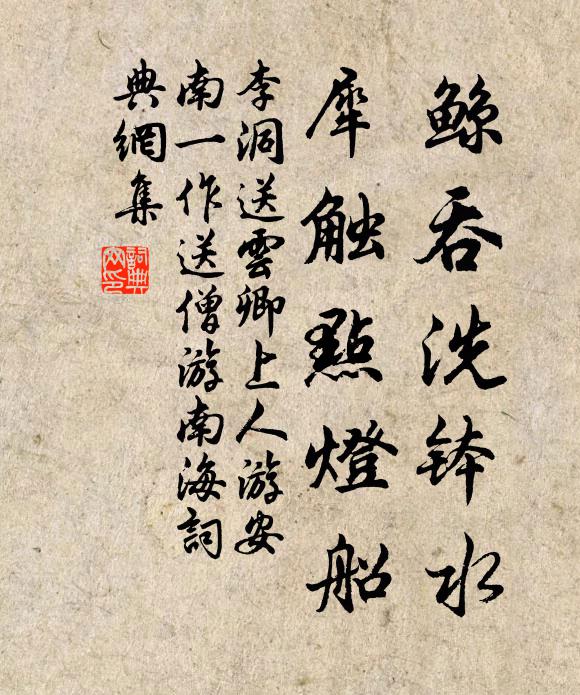 鲸吞洗钵水
犀触點燈船
李洞送雲卿上人游安
南一作送僧游南海詞
典網集
詞典
网印